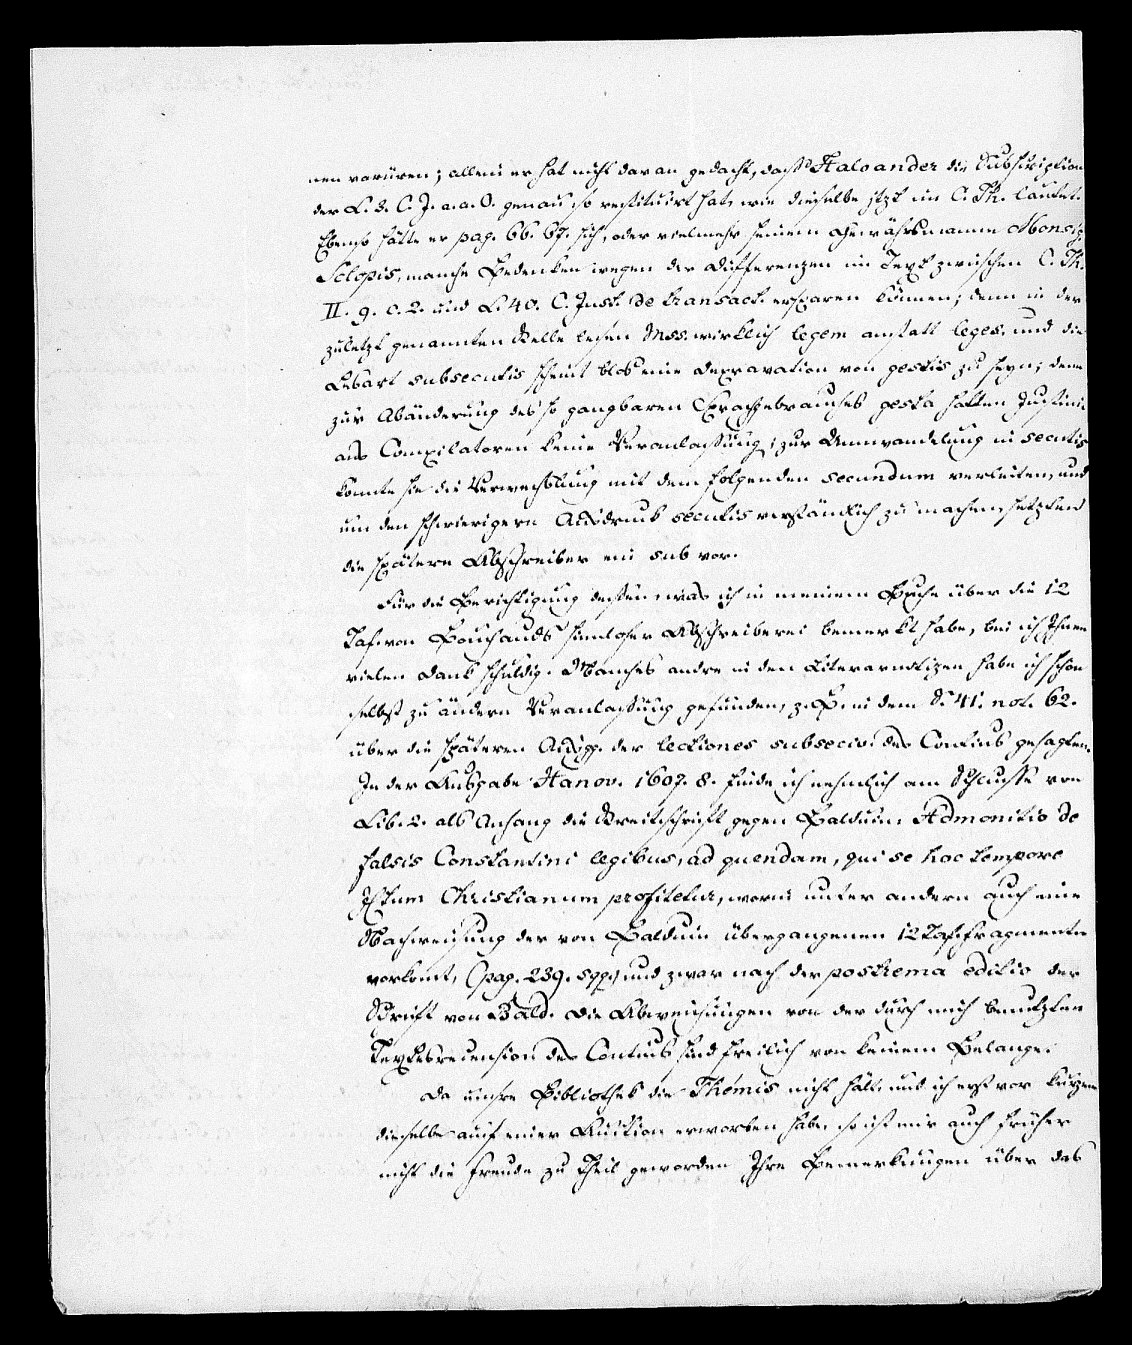 nen variiren; allein er hat nicht daran gedacht, daß Haloander die Subscription
der L. 3. C. J. a. a. O. genau so restituirt hat, wie dieselbe jetzt im C. Th. lautet.
Ebenso hätte er pag. 66. 67. sich, oder vielmehr seinem Gewährsmanne Monsig.
Sclopis, manche Bedenken wegen der Differenzen im Text zwischen C. Th.
II. 9. c. 2. und L. 40. C. Just. de transact. ersparen können; denn in der
zuletzt genannten Stelle lesen Mss. wirklich legem anstatt leges, und die
Lesart subsecutis scheint blos eine Depravation von gestis zu seyn; denn
zur Abänderung des so gangbaren Sprachgebrauches gesta hatten Justini-
ans Compilatoren keine Veranlassung; zur Umwandelung in secutis
konnte sie die Verwechslung mit dem folgenden secundum verleiten, und
um den schwierigern Ausdruck secutis verständlich zu machen, setzten
die spätern Abschreiber ein sub vor.
Für die Berichtigung dessen, was ich in meinem Buche über die 12
Taf. von Bouchauds sinnloser Abschreiberei bemerkt habe, bin ich Ihnen
vielen Dank schuldig. Manches andre in den Literarnotizen habe ich schon
selbst zu ändern Veranlassung gefunden, z. B. in dem S. 41. not. 62.
über die späteren Ausgg. der lectiones subseciv. des Contius gesagten.
In der Ausgabe Hanov. 1607. 8. finde ich nehmlich am Schlusse von
Lib. 2. als Anhang die Streitschrift gegen Balduin: Admonitio de
falsis Constantini legibus, ad quendam, qui se hoc tempore
JCtum Christianum profitetur, worin unter andern auch eine
Nachweisung der von Balduin übergangenen 12 Taf. fragmente
vorkomt, (pag. 239. sqq.) und zwar nach der postrema editio der
Schrift von Bald. Die Abweichungen von der durch mich benutzten
Textesrecension des Contius sind freilich von keinem Belange.
Da unsre Bibliothek die Themis nicht hält, und ich erst vor kurzem
dieselbe auf einer Auction erworben habe, so ist mir auch früher
nicht die Freude zu Theil geworden Ihre Bemerkungen über das